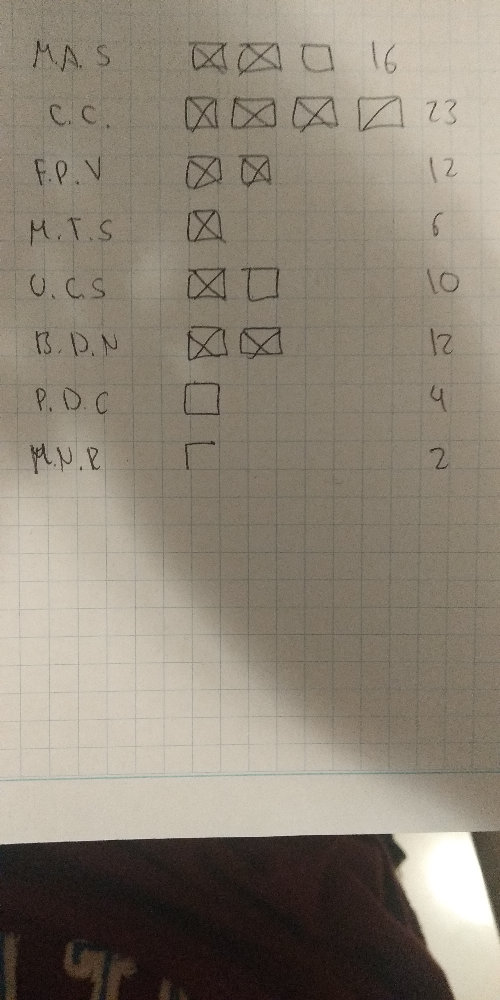 M.A.S 16
C.C. 23
F.P.V 12
M.T.S 6
U.C.S 10
B.D.N 12
P.D.C 4
M.N.R 2